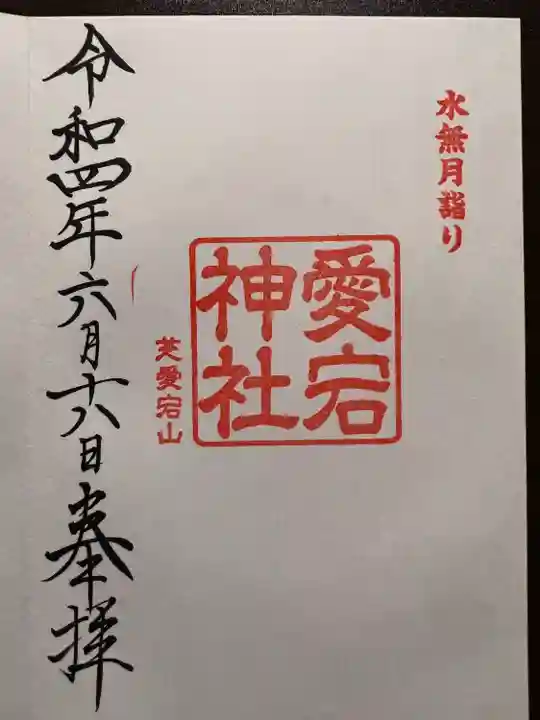 水無月詣り
愛宕
神社
芝愛宕山
令和四年六月十八日奉拝